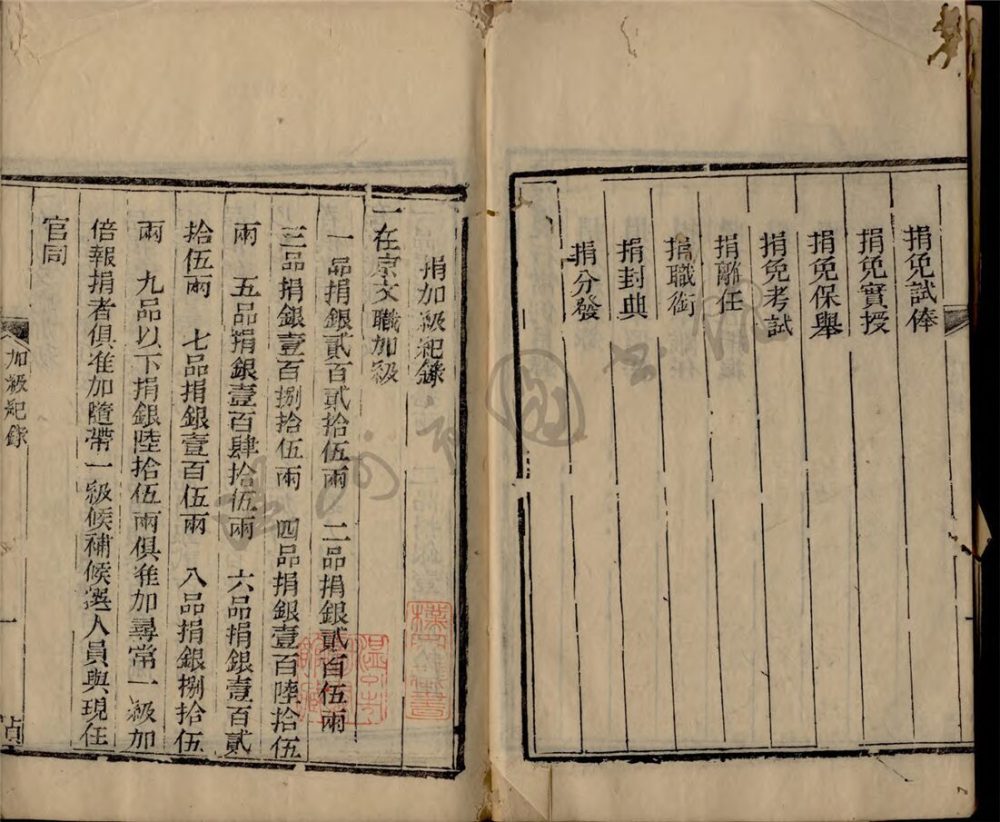 捐免試俸
捐免實授
捐免保舉
捐免考試
捐離任
捐職銜
捐封典
捐分發
捐加級紀錄
一在京文職加級
一品捐銀貳百貳拾伍兩 二品捐銀貳百伍兩
三品捐銀壹百捌拾伍兩 四品捐銀壹百陸拾伍
兩 五品捐銀壹百肆拾伍兩 六品捐銀壹百貳
拾伍兩 七品捐銀壹百伍兩 八品捐銀捌拾伍
兩 九品以下捐銀陸拾伍兩俱准加尋常一級加
倍報捐者俱准加隨帶一級候補候選人員與現任
官同
加級紀錄
一